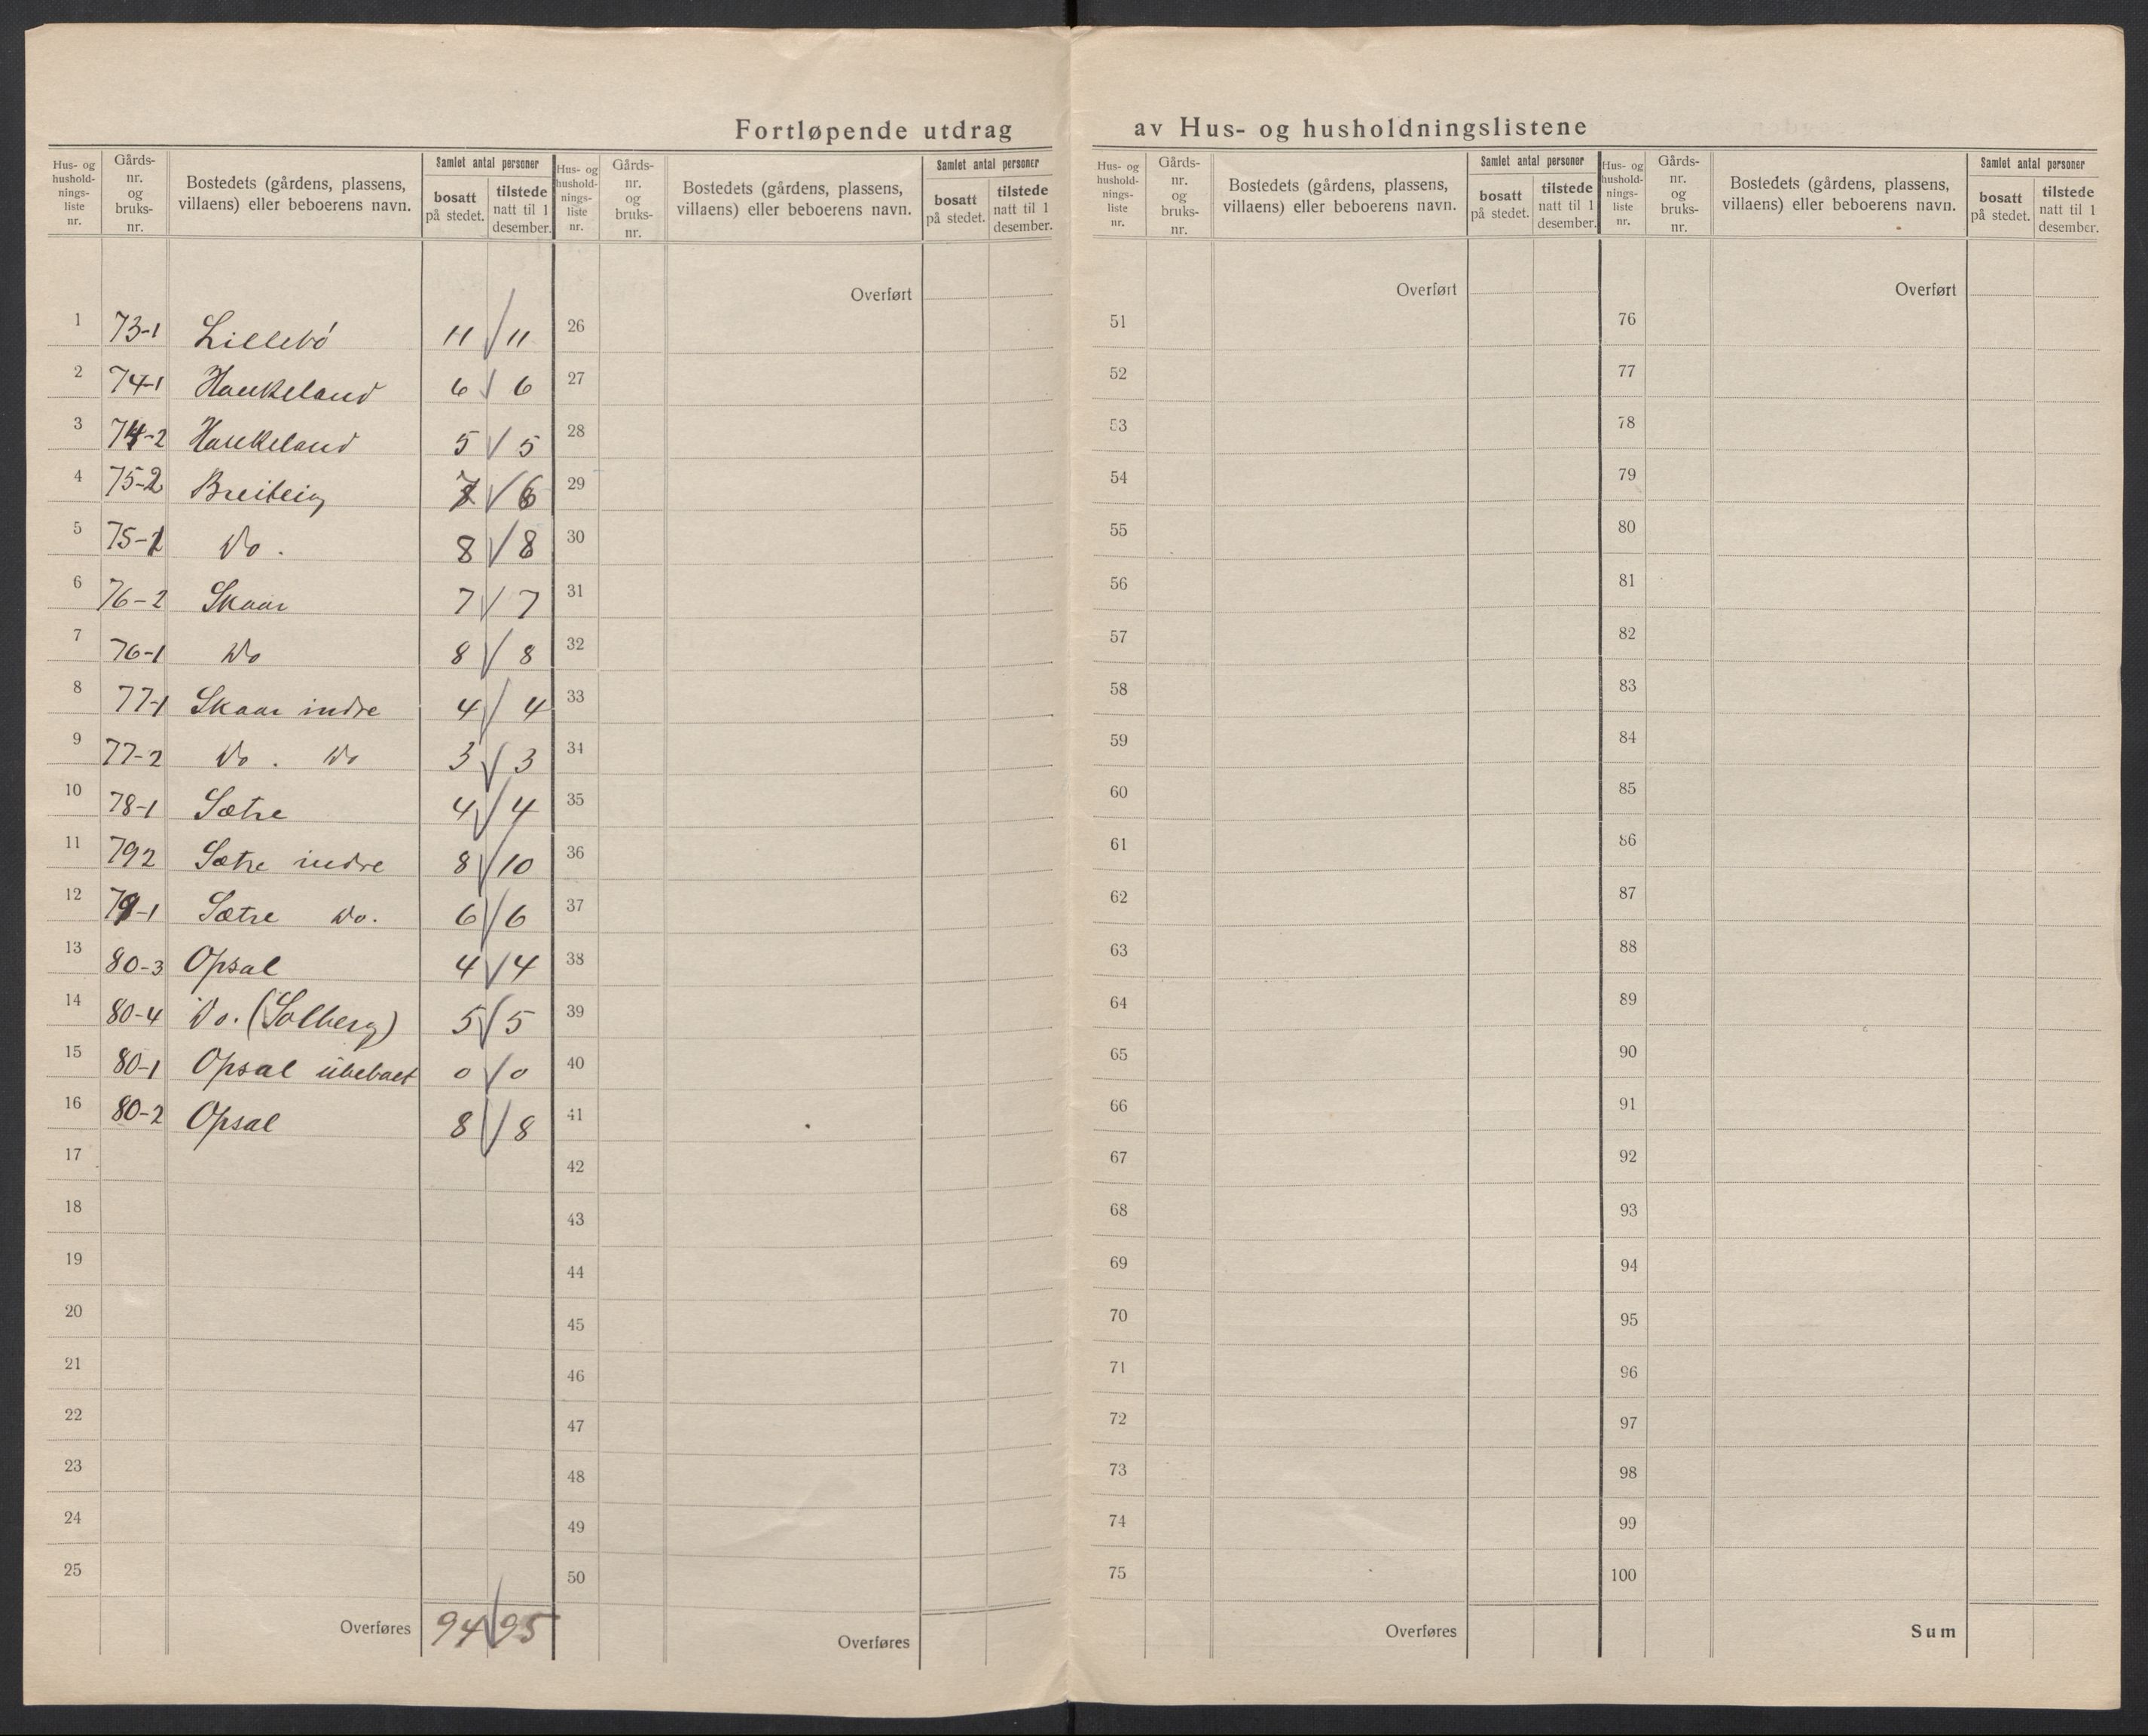 Fortløpende utdrag av Hus- og husholdningslistene
Hus- og hushold-nings-liste nr. Gårds-nr. og bruks-nr. Bostedets (gårdens, plassens, villaens) eller beboerens navn. Samlet antal personer bosatt på stedet. tilstede natt til 1 desember.
1 73-1 Lillebö 11 11
2 74-1 Haukeland 6 6
3 74-2 Haukeland 5 5
4 75-2 Breiteig 7 6
5 75-1 Do. 8 8
6 76-2 Skaar 7 7
7 76-1 Do 8 8
8 77-1 Skaar indre 4 4
9 77-2 Do. Do 3 3
10 78-1 Sætre 4 4
11 792 Sætre indre 8 10
12 79-1 Sætre Do. 6 6
13 80-3 Opsal 4 4
14 80-4 Do. (Solberg) 5 5
15 80-1 Opsal ubebaet 0 0
16 80-2 Opsal 8 8
17
18
19
20
21
22
23
24
25
Overføres 94 95
Hus- og hushold-nings-liste nr. Gårds-nr. og bruks-nr. Bostedets (gårdens, plassens, villaens) eller beboerens navn. Samlet antal personer bosatt på stedet. tilstede natt til 1 desember.
Overført
26
27
28
29
30
31
32
33
34
35
36
37
38
39
40
41
42
43
44
45
46
47
48
49
50
Overføres
Hus- og hushold-nings-liste nr. Gårds-nr. og bruks-nr. Bostedets (gårdens, plassens, villaens) eller beboerens navn. Samlet antal personer bosatt på stedet. tilstede natt til 1 desember.
Overført
51
52
53
54
55
56
57
58
59
60
61
62
63
64
65
66
67
68
69
70
71
72
73
74
75
Overføres
Hus- og hushold-nings-liste nr. Gårds-nr. og bruks-nr. Bostedets (gårdens, plassens, villaens) eller beboerens navn. Samlet antal personer bosatt på stedet. tilstede natt til 1 desember.
Overført
76
77
78
79
80
81
82
83
84
85
86
87
88
89
90
91
92
93
94
95
96
97
98
99
100
Sum